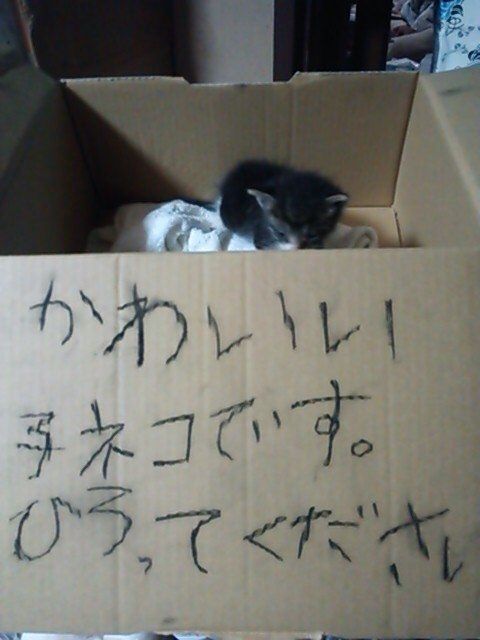 かわいい
子ネコです。
ひろってください